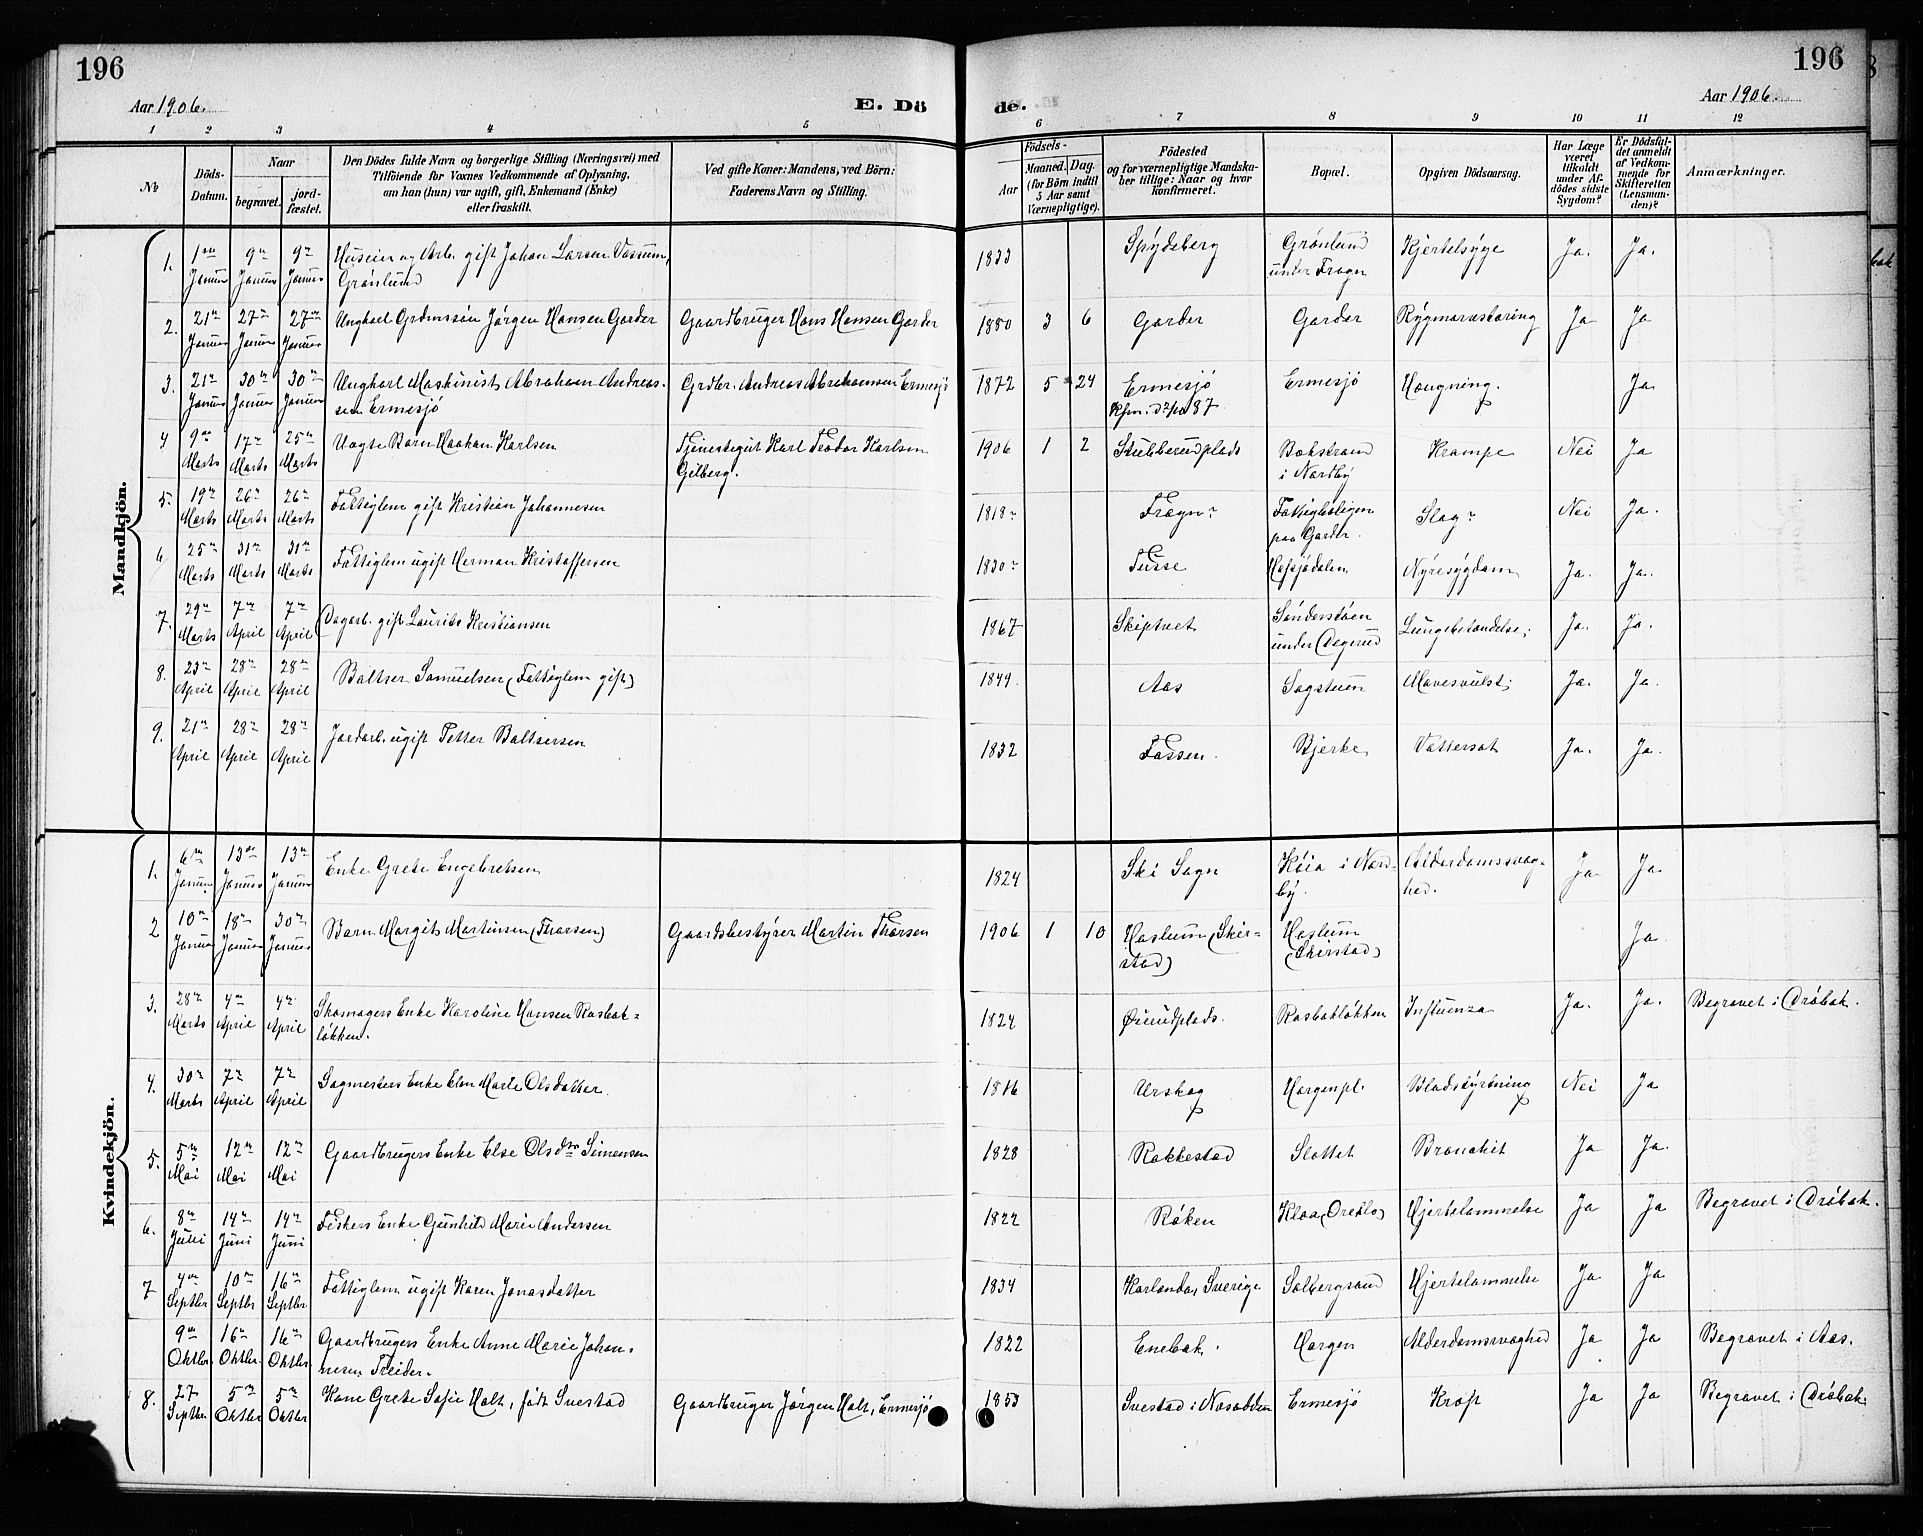 196
196
Aar 1906.
E. Dö
de.
Aar 1906.
1 2 3 4 5 6 7 8 9 10 11 12
No
Döds-
Datum.
Naar
begravet.
jord-
fæstet.
Den Dödes fulde Navn og borgerlige Stilling (Næringsvei) med
Tilföiende for Voxnes Vedkommende af Oplysning,
om han (hun) var ugift, gift, Enkemand (Enke)
eller fraskilt.
Ved gifte Koner: Mandens, ved Börn:
Faderens Navn og Stilling.
Födsels-
Aar
Maaned. Dag.
(for Börn indtil
5 Aar samt
Værnepligtige).
Födested
og for værnepligtige Mandska-
ber tillige: Naar og hvor
konfirmeret.
Bopæl.
Opgiven Dödsaarsag.
Har Læge
været
tilkaldt
under Af-
dödes sidste
Sygdom?
Er Dödsfal-
det anmeldt
af Vedkom-
mende for
Skifteretten
(Lensman-
den)?
Anmærkninger.
Mandkjön.
1. 1 Januar 9 Januar 9 Januar Huseier og Arb. gift Johan Larsen Vassum, 1833 Spydeberg Grønlund Kjertelsyge Ja. Ja.
Grønlund under Frogn
2. 21 Januar 27 Januar 27 Januar Ungkarl Grdmssøn Jørgen Hansen Garder Gaardbruger Hans Hansen Garder 1880 3 6 Garder Garder Rygmarvstæring Ja Ja
3. 21 Januar 30 Januar 30 Januar Ungkarl Maskinist Abraham Andreas- Grdbr. Andreas Abrahamsen Ermesjø 1872 5 24 Ermesjø Ermesjø Hængning. Ja
sen Ermesjø Kfm. 87
4 9 Marts 17 Marts 25 Marts Uægte Barn Haakon Karlsen Tjenestegut Karl Teodor Karlsen 1906 1 2 Stubberudplads Bakstrand Krampe Nei Ja
Gilberg. i Nordby
5. 19 Marts 26 Marts 26 Marts Fattiglem gift Kristian Johannesen 1818 Frogn Fattigboligen Slag Nei Ja.
paa Garder.
6. 25 Marts 31 Marts 31 Marts Fattiglem ugift Herman Kristoffersen 1830 Tusse Hassjødalen Nyresygdom Ja. Ja.
7. 29 Marts 7 April 7 April Dagarb. gift Laurits Kristiansen 1867 Skiptvet Sønderstøen Lungebetændelse; Ja. Ja.
under Degerud
8. 23 April 28 April 28 April Baltser Samuelsen (Fattiglem gift) 1849. Aas Sagstuen Mavesvulst; Ja. Ja.
9. 21 April 28 April 28 April Jordarb. ugift Petter Baltsersen 1832 Fossen. Bjerke Vattersot Ja. Ja.
Kvindekjön.
1. 6 Januar 13 Januar 13 Januar Enke Grete Engebretsen 1824 Ski Sogn Køia i Nord- Alderdomssvag- Ja Ja.
by. hed.
2 10 Januar 18 Januar 30 Januar Barn Margit Martinsen (Thorsen) Gaardsbestyrer Martin Thorsen 1906 1 10 Haslum (Skir- Haslum Ja.
stad) (Skirstad)
3. 28 Marts 4 April 4 April Skomagers Enke Karoline Hansen Rasbak- 1824 Øierudplads. Rasbakløkken Influenza Ja. Ja. Begravet i Drøbak.
løkken.
4. 30 Marts 7 April 7 April Sagmesters Enke Elen Marie Olsdatter. 1816 Urskog Horgenpl. Blodstyrtning Nei Ja
5. 5 Mai 12 Mai 12 Mai Gaardbrugers Enke Else Olsdtr Simensen 1828 Rakkestad Slottet Bronchit Ja Ja.
6. 8 Juni 14 Juni 14 Juni Fiskers Enke Gunhild Marie Andersen 1822 Røken Kloa (Oredlo) Hjertelammelse Ja Ja Begravet i Drøbak.
7 4 Septbr 10 Septbr 16 Septbr. Fattiglem ugift Karen Jonasdatter 1834 Karlanda, Sverige Solbergsund Hjertelammelse Ja Ja
9 Oktbr. 16 Oktbr. 16 Oktbr. Gaardbrugers Enke Anne Marie Johan- 1822 Enebak. Horgen Alderdomssvaghed Ja Ja Begravet i Aas.
nesen Treider.
8. 27 Septbr. 5 Oktbr 5 Oktbr Kone Grete Sofie Holt, født Svestad Gaardbruger Jørgen Holt, Ermesjø 1853 Svestad i Nesodden Ermesjø Kræft Ja Ja Begravet i Drøbak.